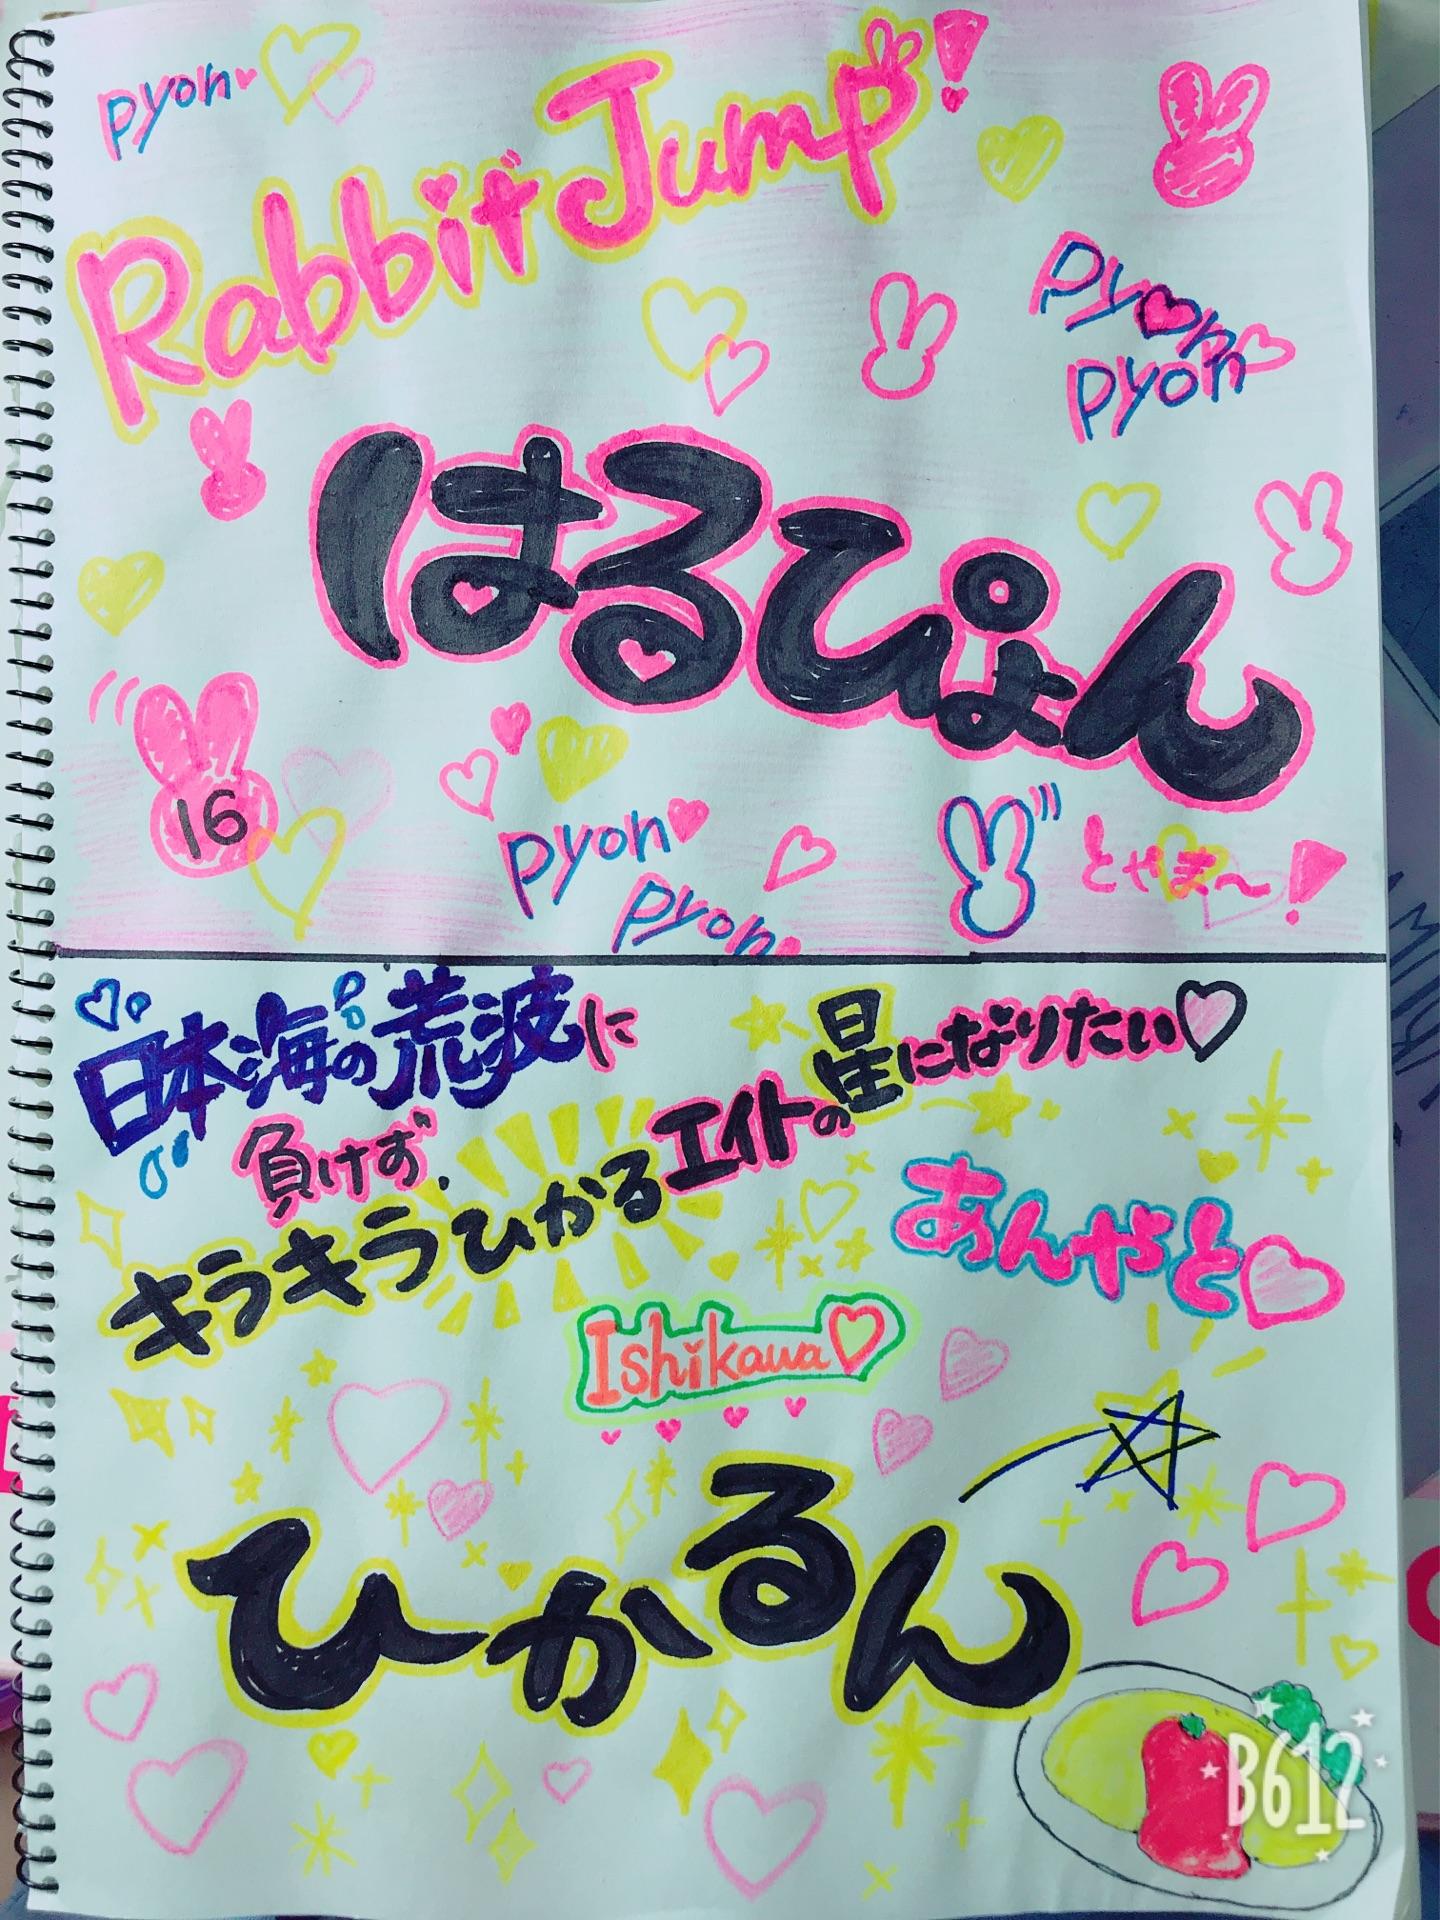 pyon
Rabbit Jump!
pyon
pyon
はるぴょん
16
pyon
pyon
とやま〜!
日本海の荒波に
負けず、
キラキラひかるエイトの星になりたい
あんやと
Ishikawa
ひかるん
B612